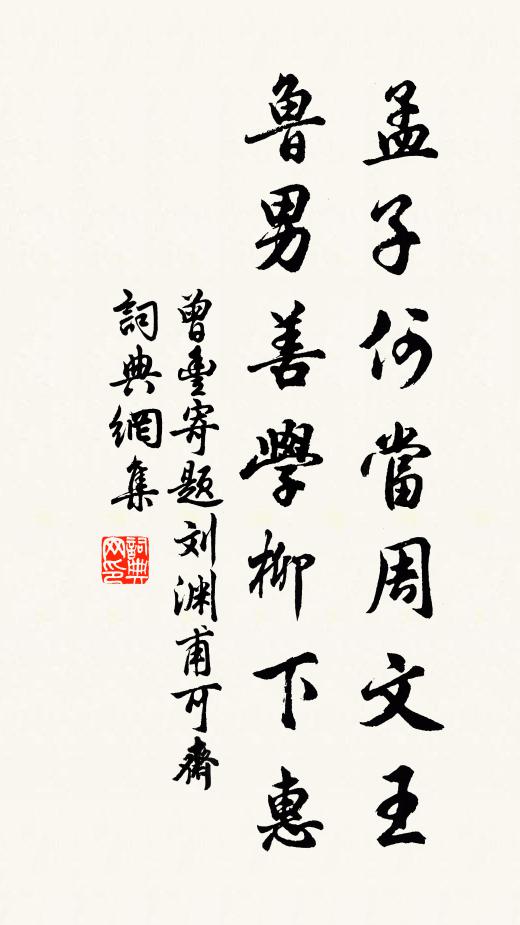 孟子何當周文王
魯男善學柳下惠
曾豐寄題刘渊甫可齋
詞典網集
詞典網印